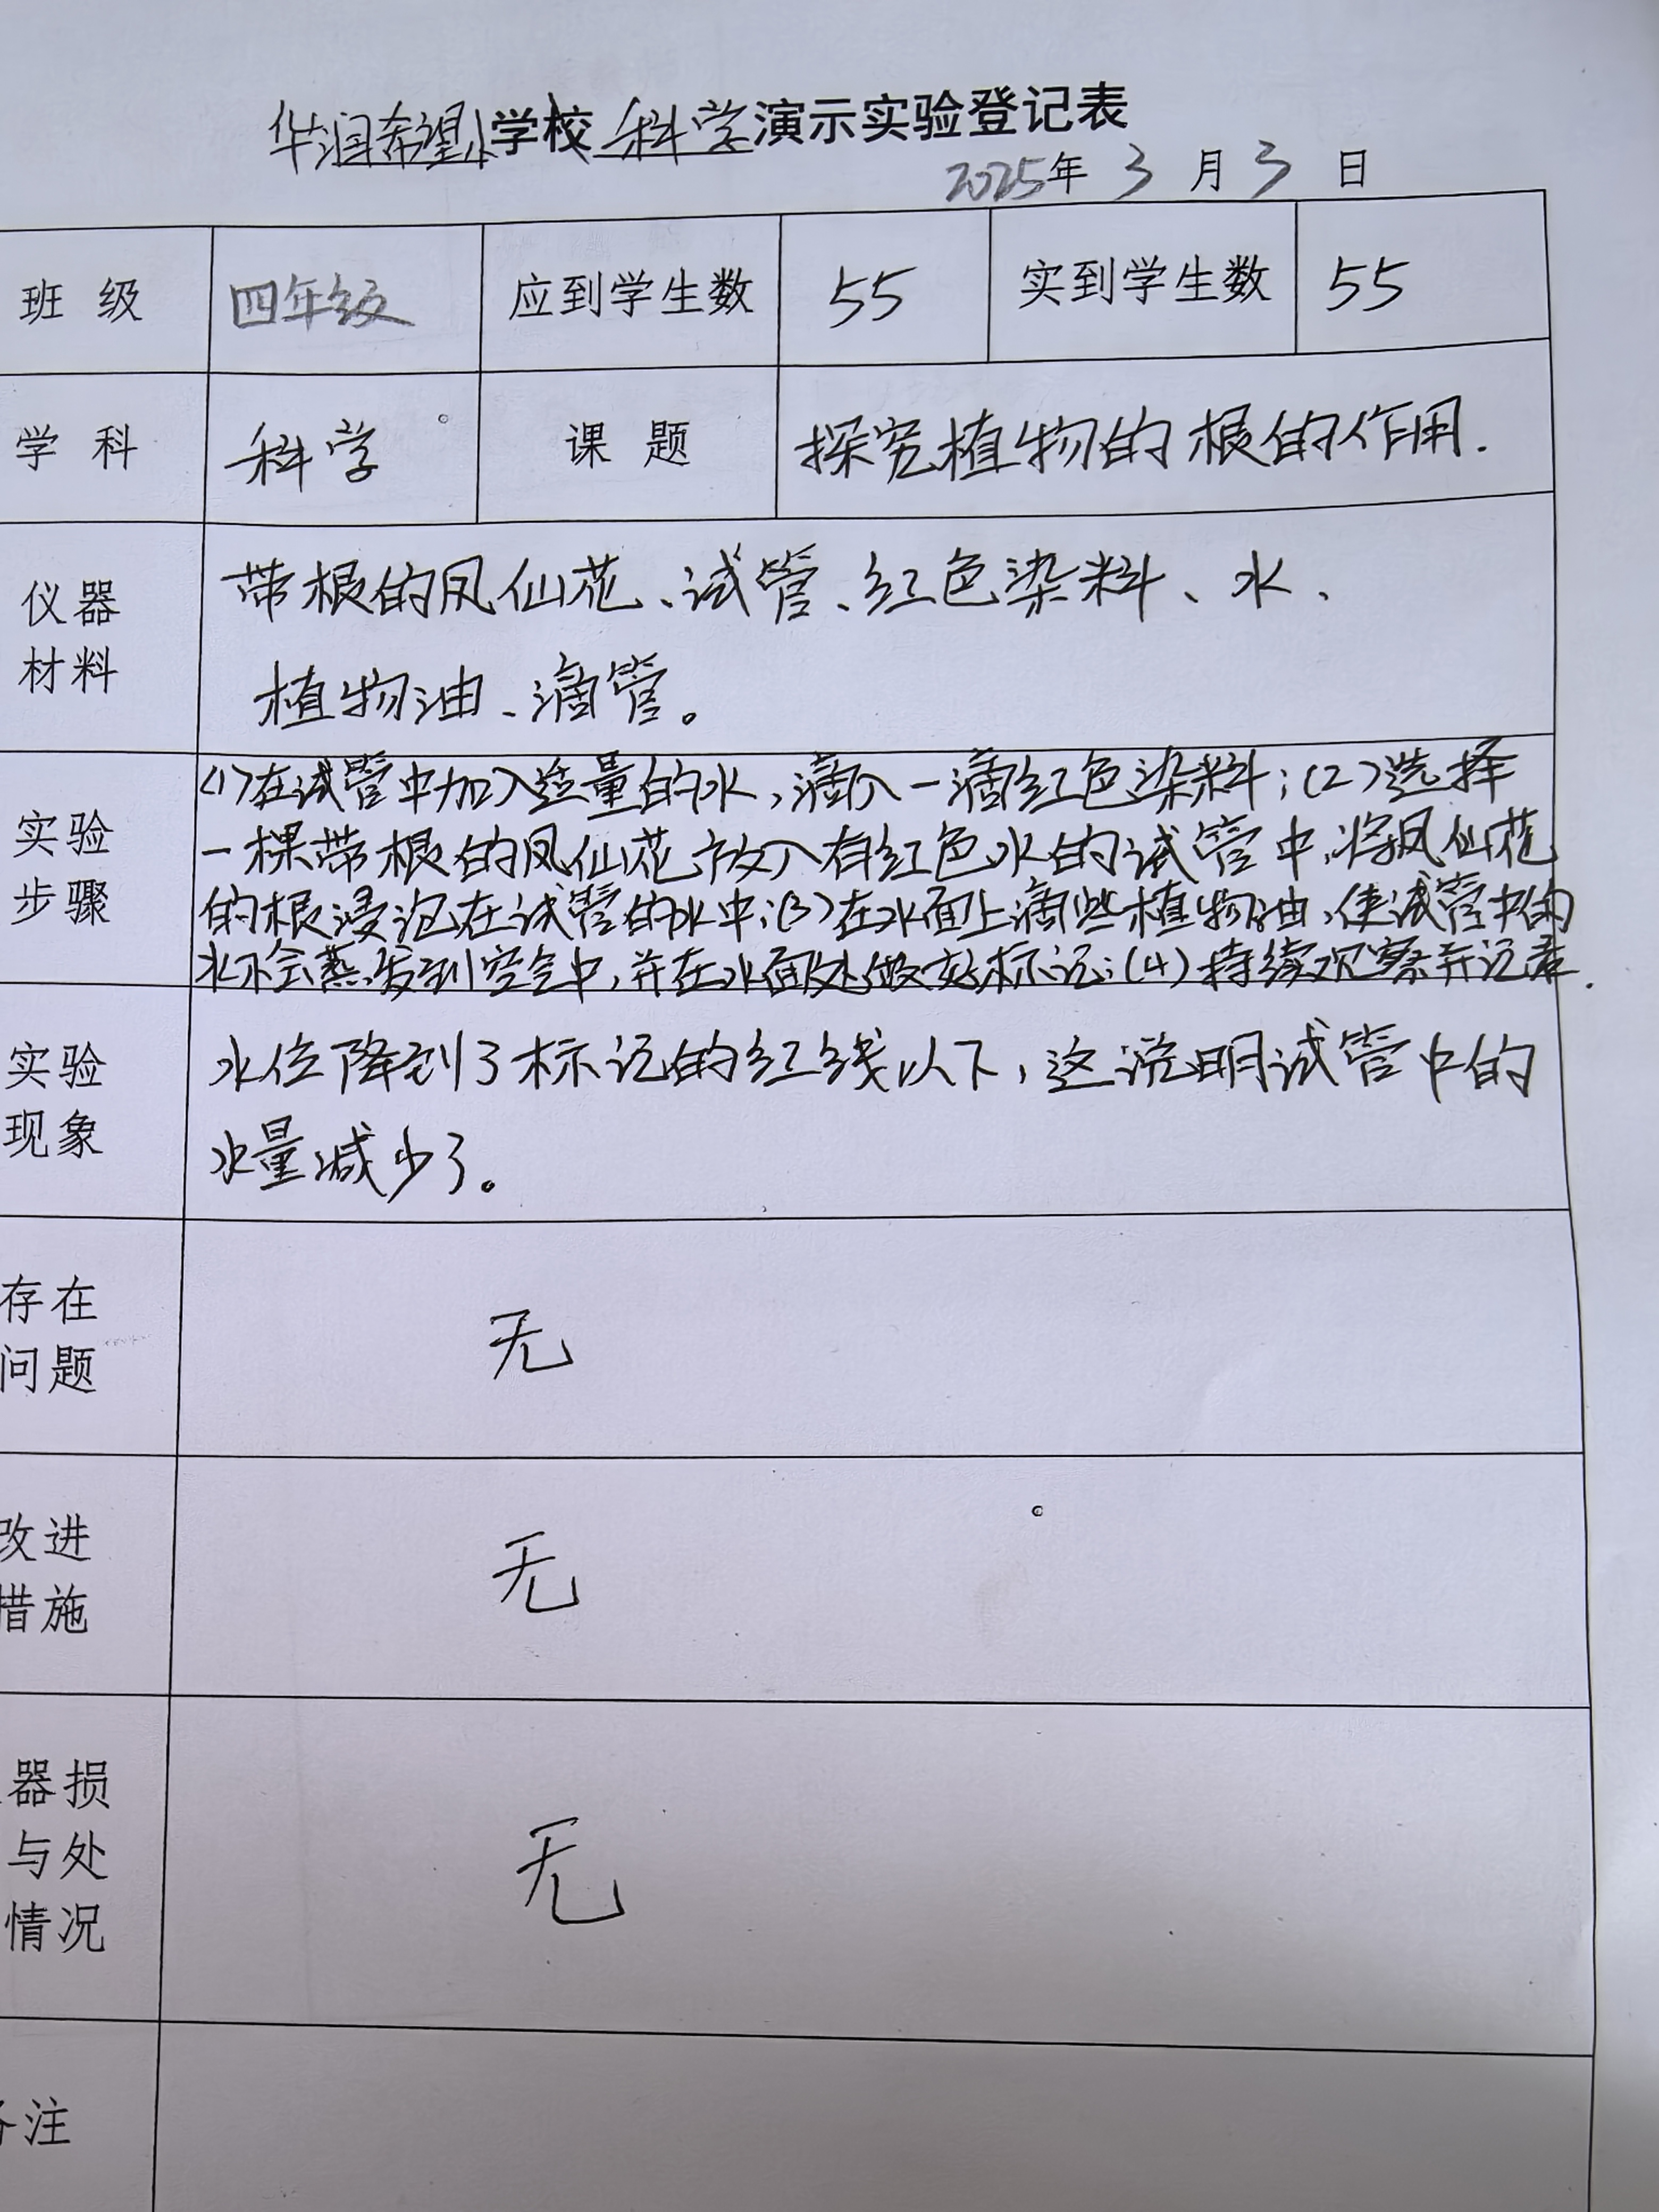 华润希望小学校科学演示实验登记表
2025年3月3日
班级 四年级 应到学生数 55 实到学生数 55
学科 科学 课题 探究植物的根的作用.
仪器
材料
带根的凤仙花、试管、红色染料、水、
植物油、滴管。
实验
步骤
(1)在试管中加入适量的水,滴入一滴红色染料;(2)选择
一棵带根的凤仙花放入有红色水的试管中,将凤仙花
的根浸泡在试管的水中;(3)在水面上滴些植物油,使试管中的
水不会蒸发到空气中,并在水面处做好标记;(4)持续观察并记录.
实验
现象
水位降到了标记的红线以下,这说明试管中的
水量减少了。
存在
问题
无
改进
措施
无
器损
与处
情况
无
备注